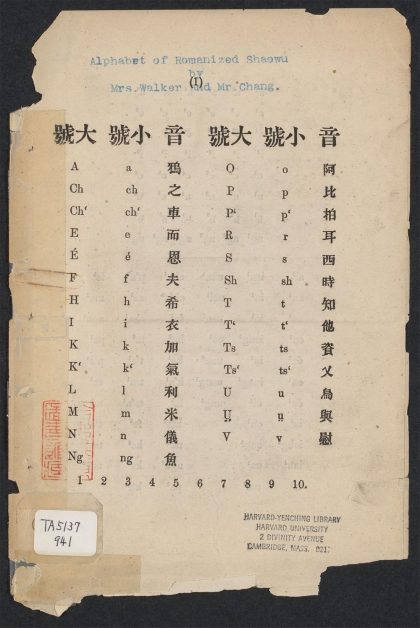 Alphabet of Romanized Shaowu
by
(1)
Mrs. Walker and Mr. Chang.
號大 號小 音 號大 號小 音
A a 鴉 O o 阿
Ch ch 之 P p 比
Ch‘ ch‘ 車 P‘ p‘ 拍
E e 而 R r 耳
É é 恩 S s 西
F f 夫 Sh sh 時
H h 希 T t 知
I i 衣 T‘ t‘ 他
K k 加 Ts ts 資
K‘ k‘ 氣 Ts‘ ts‘ 乂
L l 利 U u 烏
M m 米 Ṳ ṳ 與
N n 儀 V v 慰
Ng ng 魚
1 2 3 4 5 6 7 8 9 10.
TA5137
941
HARVARD-YENCHING LIBRARY
HARVARD UNIVERSITY
2 DIVINITY AVENUE
CAMBRIDGE, MASS.